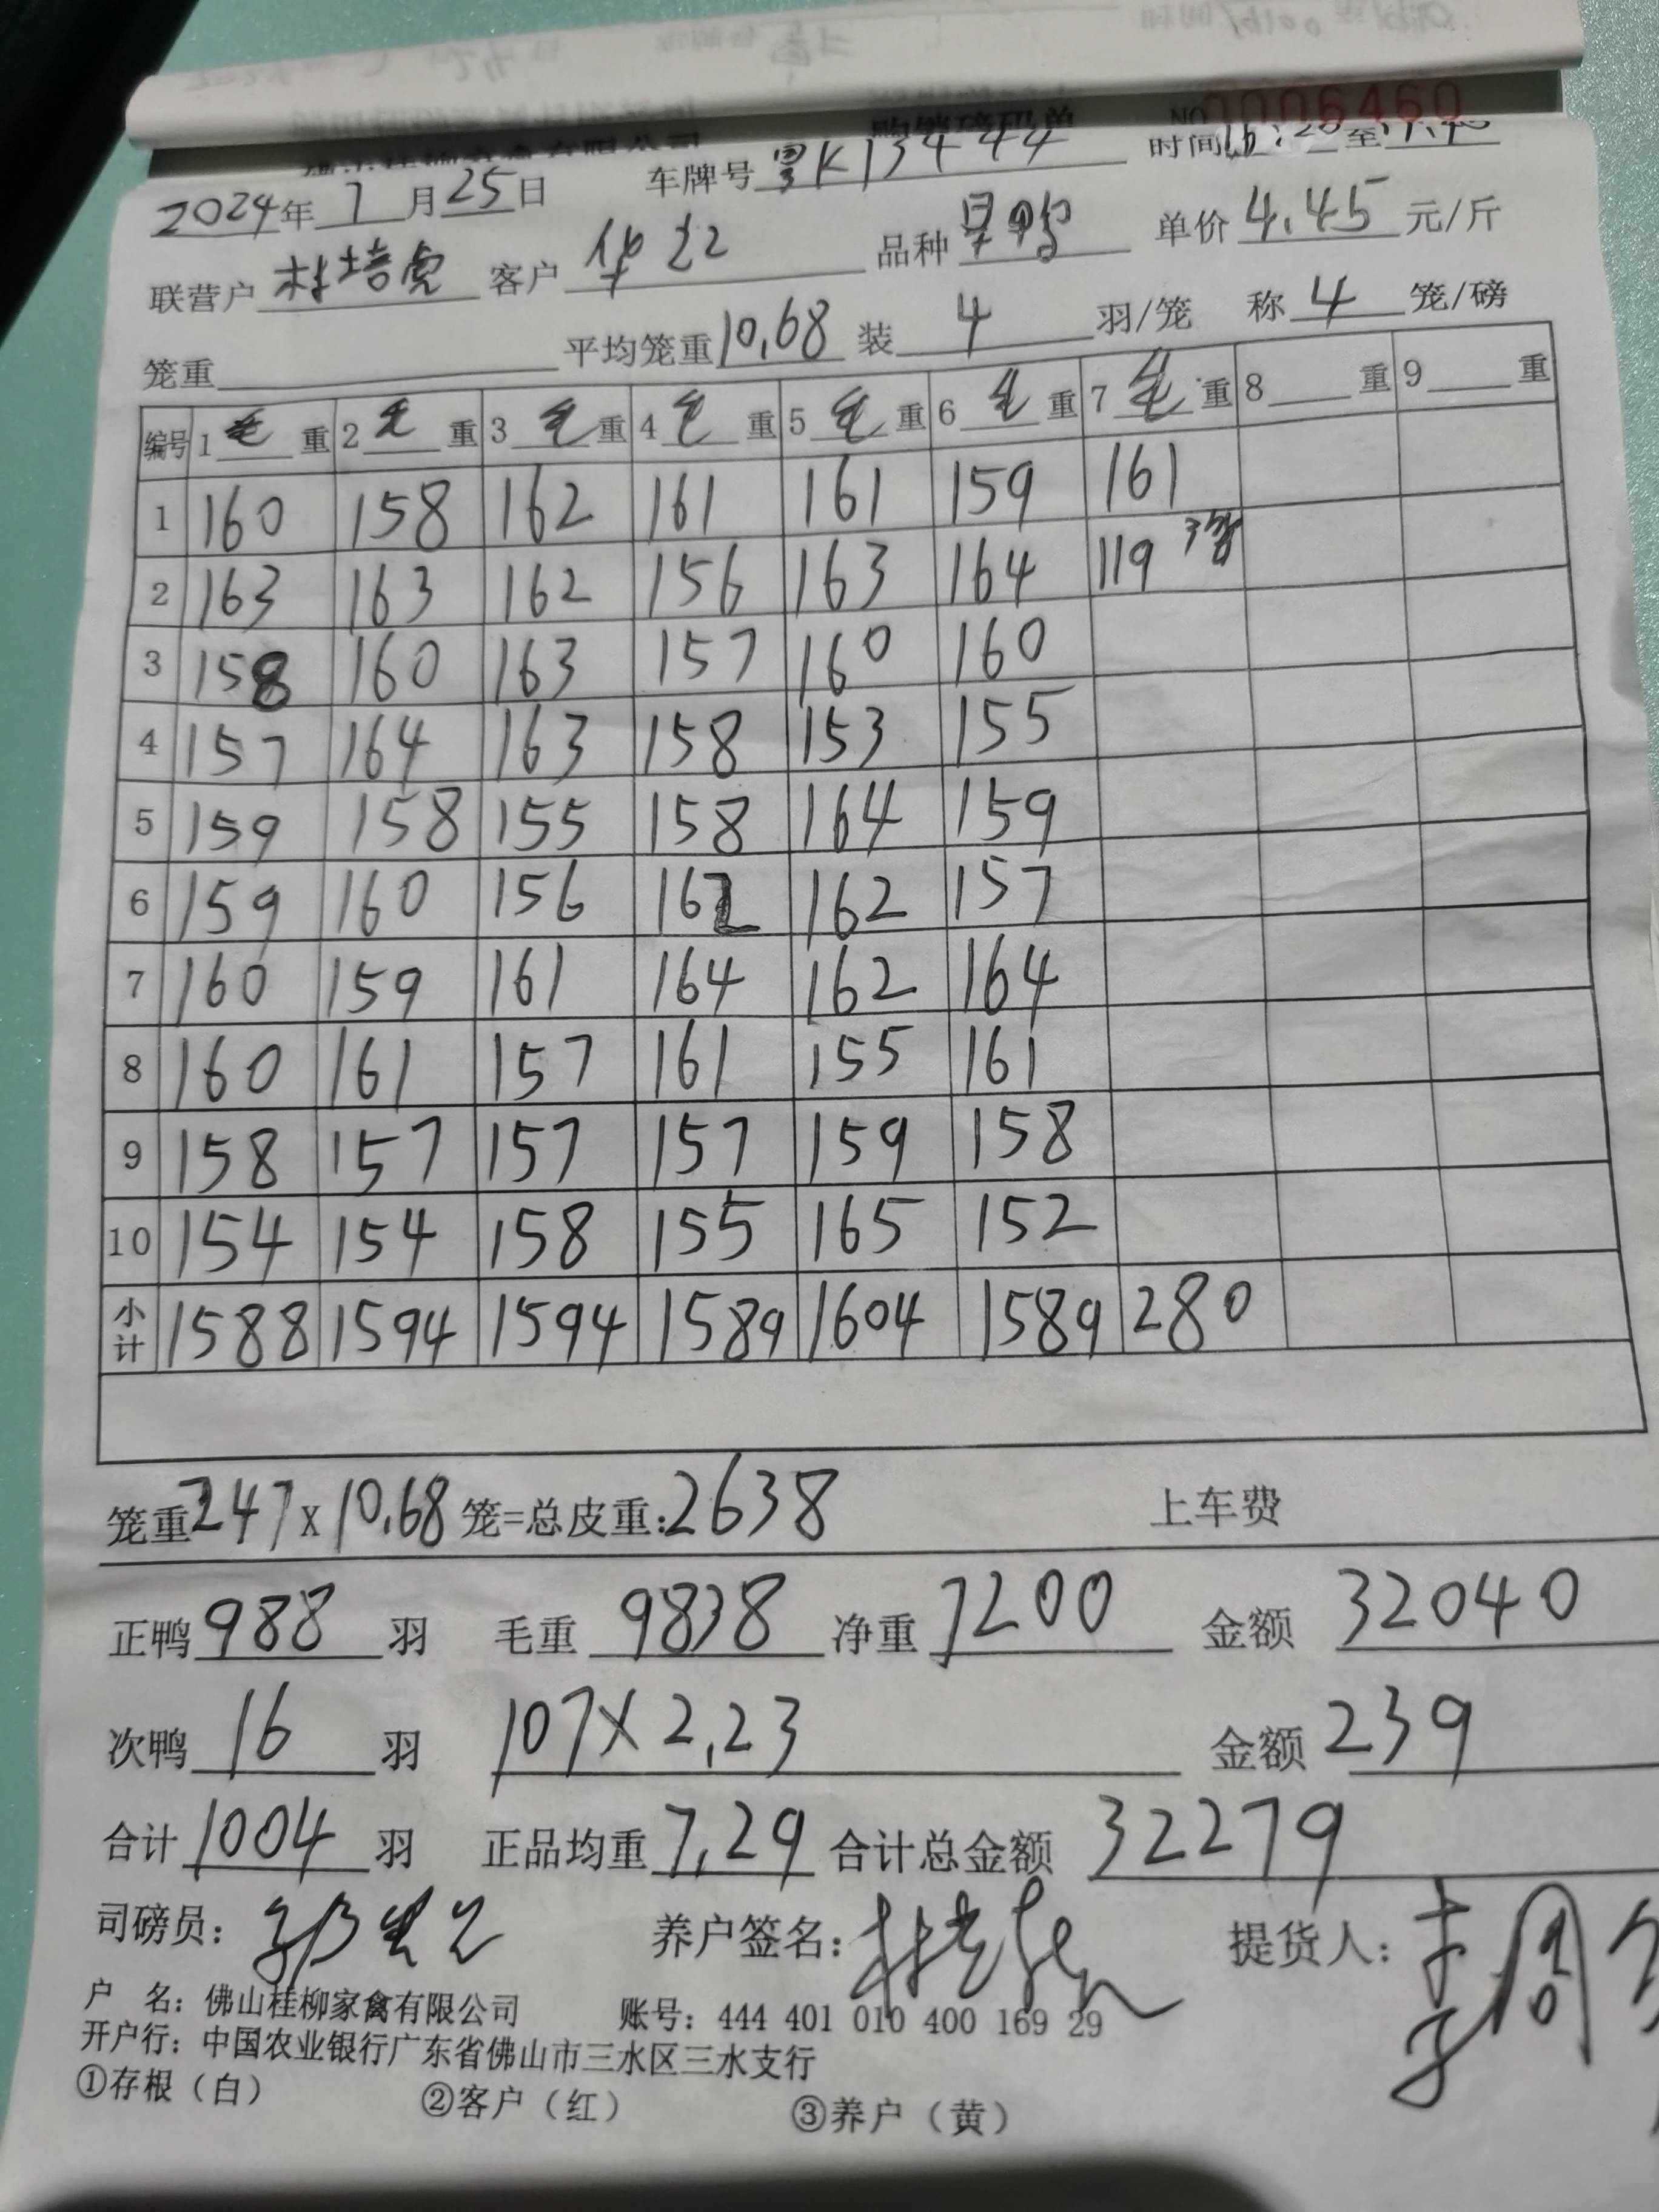 购销磅码单 NO 0006460
2024年7月25日 车牌号 K13444 时间16:20至
联营户 林培虎 客户 华 品种 旱鸭 单价4.45元/斤
笼重 平均笼重10.68装 4 羽/笼 称 4 笼/磅
编号 1毛重 2毛重 3毛重 4毛重 5毛重 6毛重 7毛重 8 重 9 重
1 160 158 162 161 161 159 161
2 163 163 162 156 163 164 119 3笼
3 158 160 163 157 160 160
4 157 164 163 158 153 155
5 159 158 155 158 164 159
6 159 160 156 162 162 157
7 160 159 161 164 162 164
8 160 161 157 161 155 161
9 158 157 157 157 159 158
10 154 154 158 155 165 152
小计 1588 1594 1594 1589 1604 1589 280
笼重247x10.68笼=总皮重:2638 上车费
正鸭988羽 毛重 9838 净重 7200 金额 32040
次鸭 16 羽 107X2.23 金额 239
合计1004羽 正品均重7.29 合计总金额 32279
司磅员: 养户签名: 提货人:
户 名: 佛山桂柳家禽有限公司 账号: 444 401 010 400 169 29
开户行: 中国农业银行广东省佛山市三水区三水支行
①存根（白） ②客户（红） ③养户（黄）